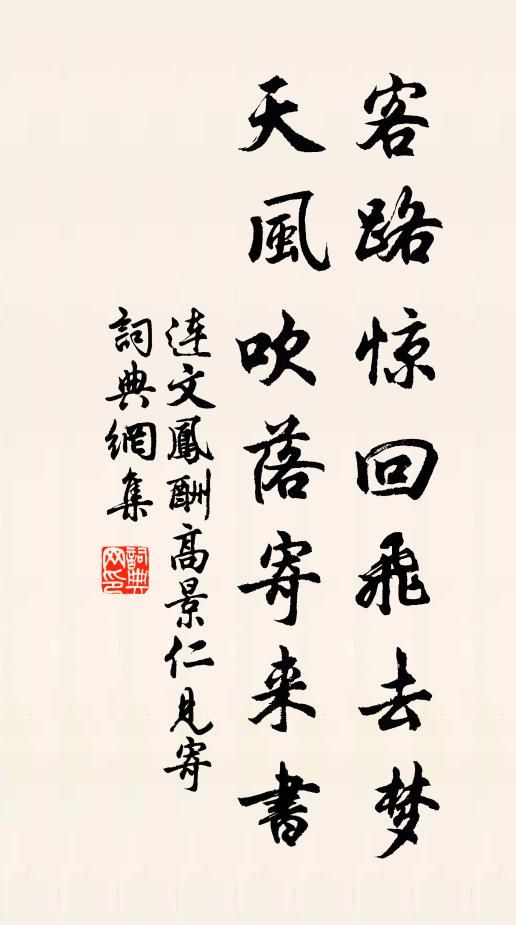 客路惊回飛去梦
天風吹落寄来書
连文鳳酬高景仁見寄
詞典網集
詞典网印